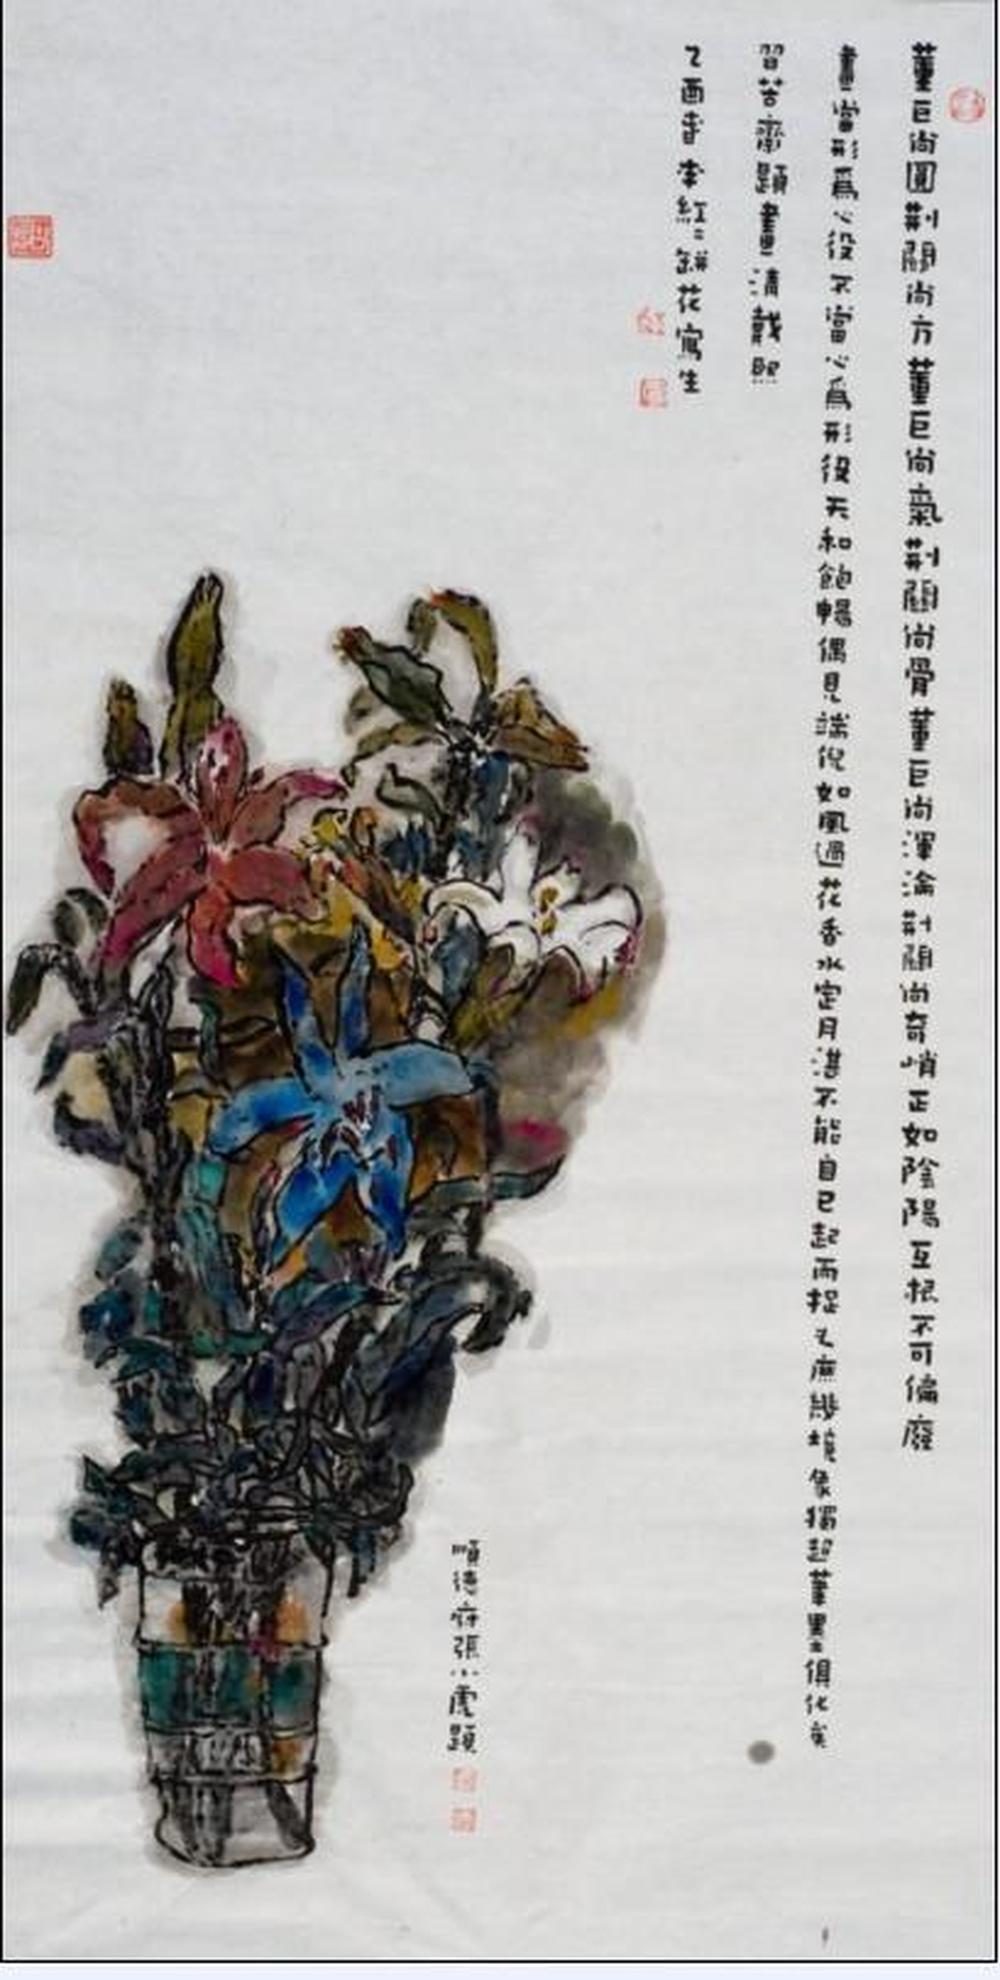 董巨尚圓荆關尚方董巨尚氣荆關尚骨董巨尚渾淪荆關尚奇峭正如陰陽互根不可偏廢
畫當形爲心役不當心爲形役天和飽暢偶見端倪如風過花香水定月湛不能自已起而捉之庶幾境象獨超筆墨俱化矣
習苦齋題畫清戴熙
乙酉春李紅 缾花寫生
順德府張小虎題